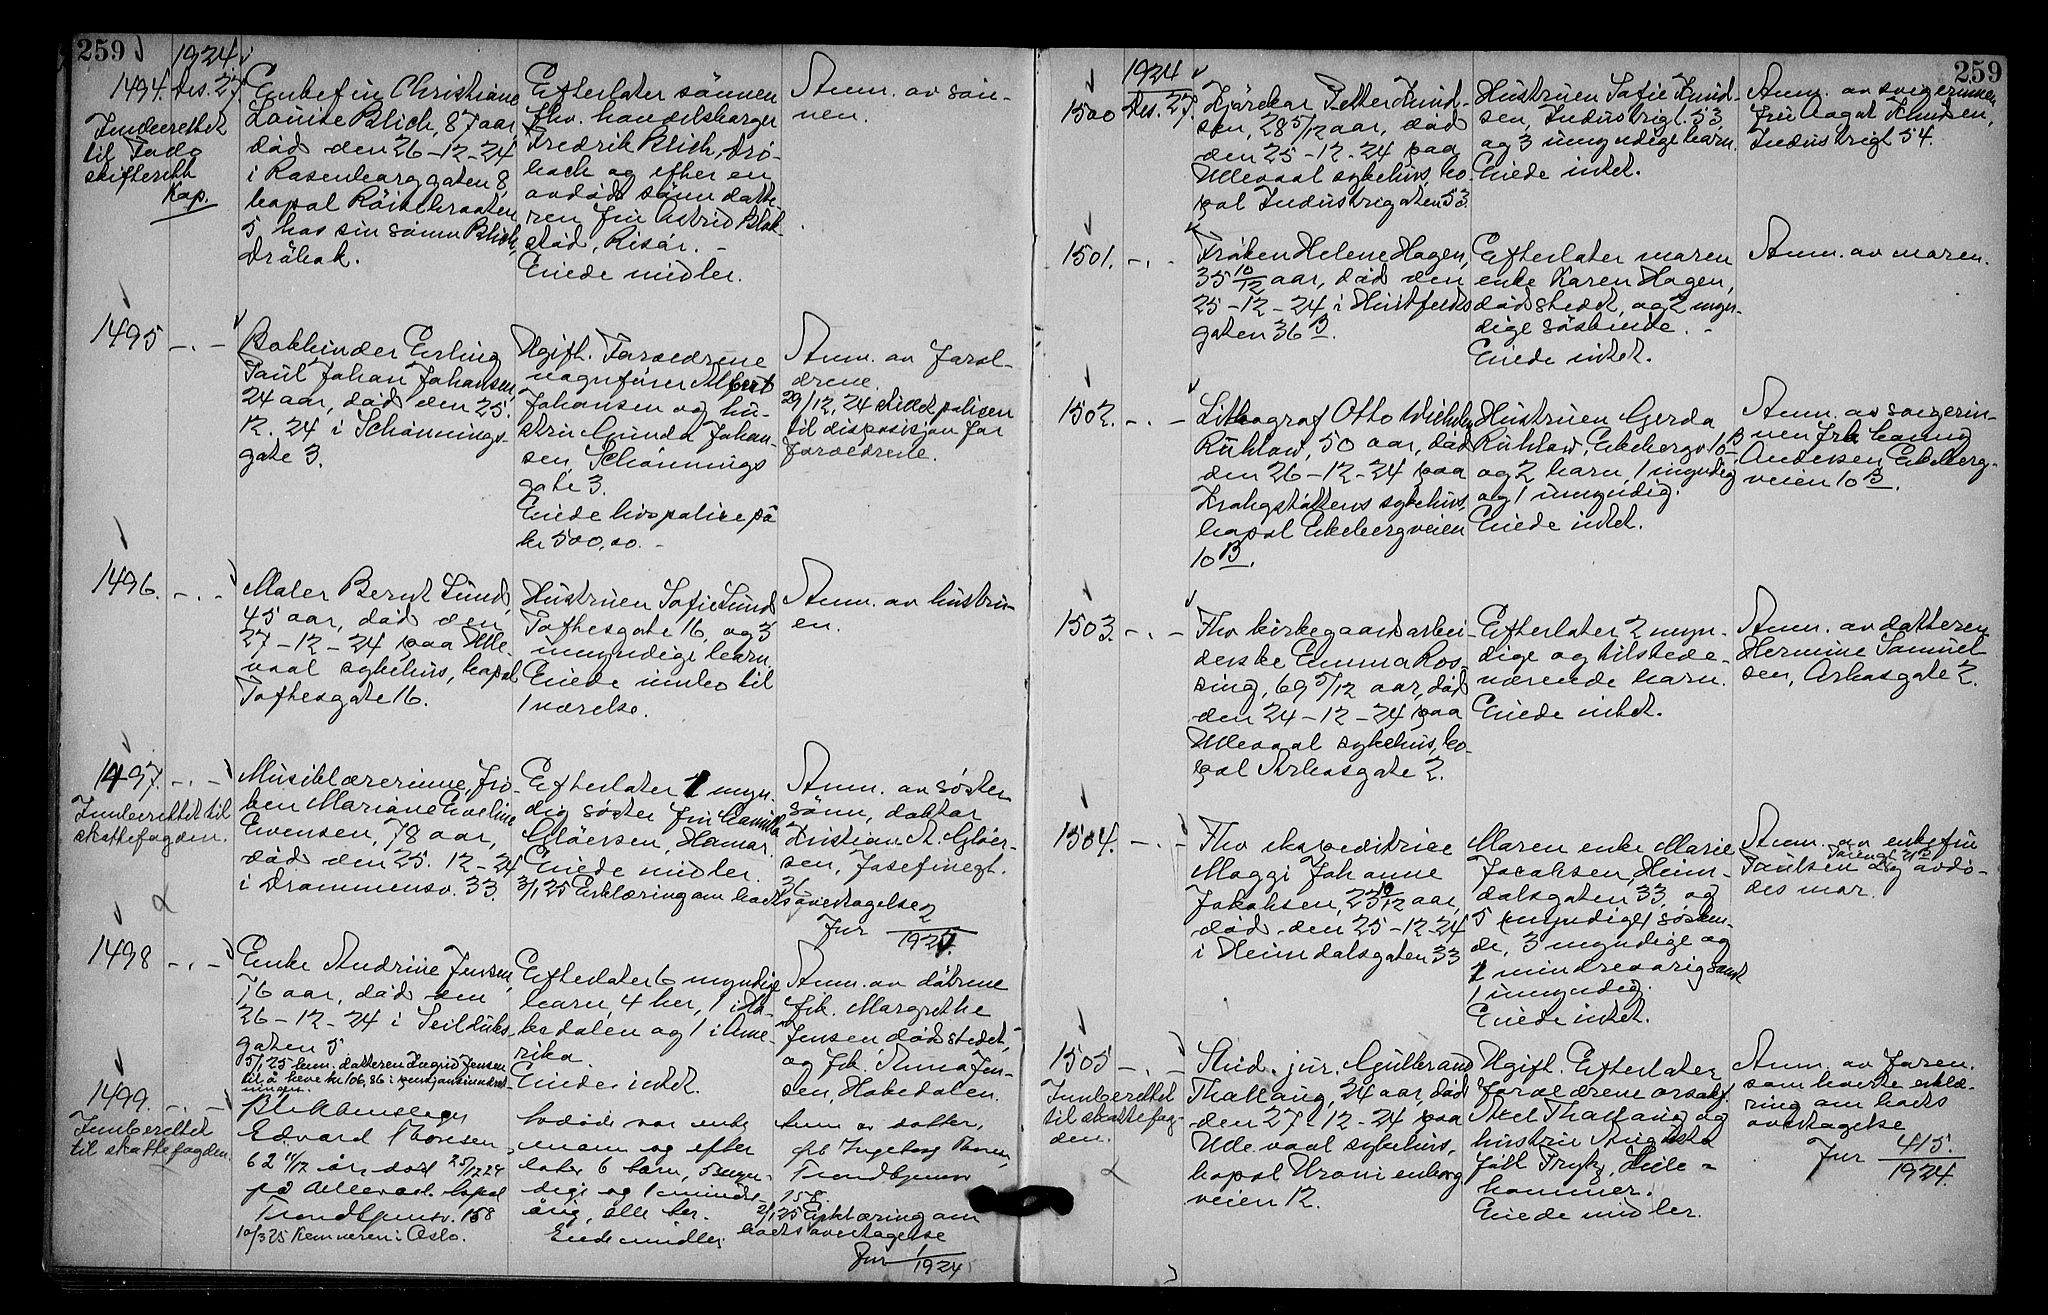 259
1924
1494. Des. 27.
Indberettet
til Follo
skifterett
Kap.
Enkefru Christiane
Louise Blich, 87 aar,
død den 26-12-24
i Rosenborggaten 8,
bopæl
5 hos sin sønn Blich,
Drøbak.
Efterlater sønnen
fhv. handelsborger
Fredrik Blich, Drø-
bak og efter en
avdød sønn datte-
ren fru Astrid Blak-
stad, Risør. -
Eiede midler.
Anm. av søn-
nen.
1495 -.-
Bokbinder Erling
Paul Johan Johansen,
24 aar, død den 25.
12. 24 i Schønnings-
gate 3.
Ugift. Forældrene
vognfører Albert
Johansen og hu-
stru Gunda Johan-
sen, Schønnings
gate 3.
Eiede livspolise på
kr 500,00. -
Anm. av foræl-
drene.
29/12. 24 stillet polisen
til disposisjon for
forældrene.
1496. -.-
Maler Bernt Lund,
45 aar, død den
27-12-24 paa Ulle-
vaal sykehus, bopæl
Toftesgate 16.
Hustruen Sofie Lund
Toftesgate 16, og 3
umyndige barn.
Eiede innbo til
1 værelse.
Anm. av hustru-
en.
1497. -.-
Indberettet til
skattefogden.
Musiklærerinne, frø-
ken Mariane Eveline
Evensen, 78 aar,
død den 25. 12-24
i Drammensv. 33.
Efterlater 1 myn-
dig søster fru Camilla
Gløersen, Hamar.
Eiede midler.
3/1 25 Erklæring om boets overtagelse
Anm. av søster
sønn, doktor
Kristian A. Gløer-
sen, Josefinegt.
36
Jnr 2/1925.
1498 -.-
Enke Andrine Jensen,
76 aar, død den
26-12-24 i Seilduks-
gaten 5
5/1 25 bem. datteren Ingrid Jensen
til å heve kr 106,86 i
Efterlater 6 myndige
barn, 4 her, 1 i Ha-
kedalen og 1 i Ame-
rika
Eiede intet.
Anm. av døtrene
frk. Margrethe
Jensen dødsstedet,
og frk. Anna Jen-
sen, Hakedalen.
1499. -.-
Indberettet
til skattefogden.
Blikkenslager
Edvard Thoresen
62 11/12 år, død 25/12 24
på Ullevaal. bopæl
Trondhjemsv. 158
10/3 25 Kemneren i Oslo.
Avdøde var enke
mann og efter
later 6 barn, 5 myn-
dige og 1 mindre-
årig, alle her.
Eiede midler.
Anm av datter,
frk Ingeborg Thoresen,
Trondhjemsv
158.
2/1 25 Erklæring om
boets overtagelse
Jnr 1/1924
259
1924
1500 Des. 27.
Kjørekar Petter Knud-
sen, 28 5/12 aar, død
den 25-12-24 paa
Ullevaal sykehus, bo-
pæl Industrigaten 53.
Hustruen Sofie Knud-
sen, Industrigt. 53
og 3 umyndige barn.
Eiede intet.
Anm. av svigerinnen
fru Aagot Knudsen,
Industrigt 54.
1501. -.-
Frøken Helene Hagen,
35 10/12 aar, død den
25-12-24 i Huitfeldts
gaten 36 B.
Efterlater moren
enke Karen Hagen,
dødsstedet, og 2 myn-
dige søskende. -
Eiede intet.
Anm. av moren.
1502. -.-
Lithograf Otto Wilhelm
Rühlow, 50 aar, død
den 26-12-24 paa
Krohgstøttens sykehus,
bopæl Ekebergveien
10 B.
Hustruen Gerda
Rühlow, Ekebergv 10 B
og 2 barn, 1 myndig
og 1 umyndig.
Eiede intet.
Anm. av svigerin-
nen frk Fanny
Andersen, Ekeberg-
veien 10 B.
1503. -.-
Fhv kirkegaardsarbei-
derske Emma Ros-
sing, 69 5/12 aar, død
den 24-12-24 paa
Ullevaal sykehus, bo-
pæl Arbosgate 2.
Efterlater 2 myn-
dige og tilstede-
værende barn.
Eiede intet.
Anm. av datteren
Hermine Samuel
sen, Arbosgate 2.
1504. -.-
Fhv ekspeditrice
Maggi Johanne
Jakobsen, 23 10/12 aar,
død den 25-12-24
i Heimdalsgaten 33
Moren enke Marie
Jacobsen, Heim-
dalsgaten 33, og
5 (myndige) søsken-
de, 3 myndige og
1 mindreaarig samt
1 umyndig.
Eiede intet.
Anm. av enkefru
Paulsen og avdø-
des mor.
1505 -.-
Indberettet
til skattefog-
den.
Stud. jur. Gulbrand
Thallaug, 24 aar, død
den 27-12-24 paa
Ullevaal sykehus,
bopæl Uranienborg
veien 12.
Ugift. Efterlater
forældrene o.r.sakf.
Axel Thallaug og
hustru Augusta
født Fryk, Lille-
hammer.
Eiede midler.
Anm. av faren.
som hadde erklæ-
ring om boets
overtagelse
Jnr 415./1924